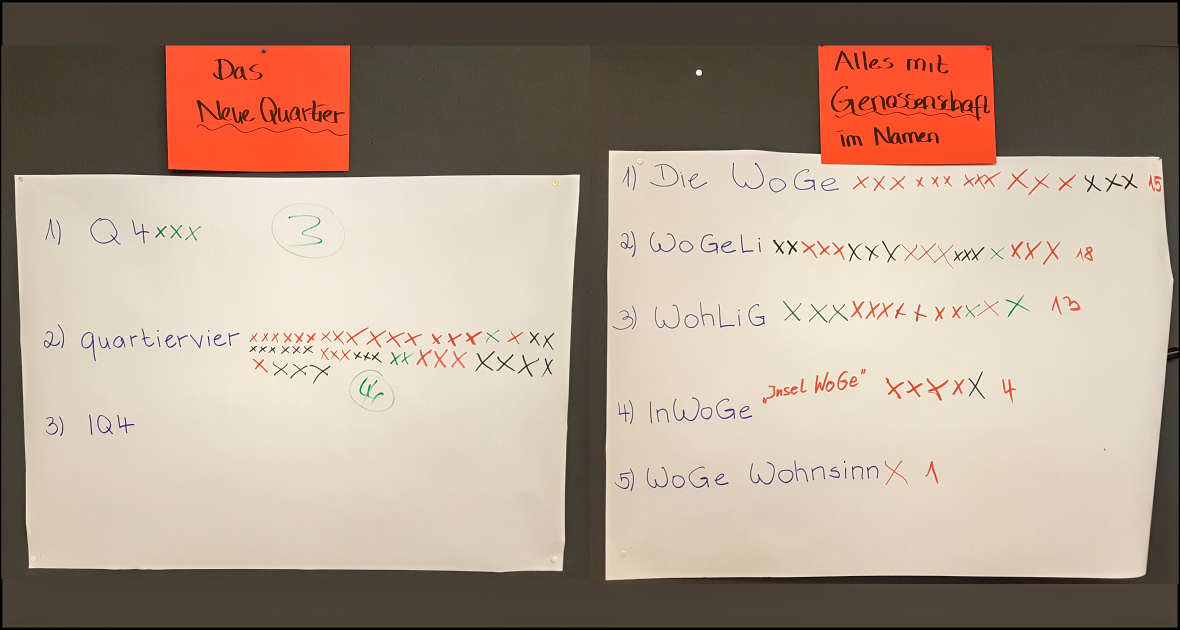 Das
Neue Quartier
1) Q4 xxx 3
2) quartiervier xxx xxx xxx XXXX xxx x x xx
xxx xxx xxx xxx xx XXX XXXX
x XXX
3) IQ4
Alles mit
Genossenschaft
im Namen
1) Die WoGe XXX xxx xxx XXX XXX 15
2) WoGeLi XX XXX XXX XXX xxx x XXX 18
3) WohLiG XXX XXX X X XX X X X 13
4) InWoGe "Insel WoGe" XXXXX 4
5) WoGe Wohnsinn X 1